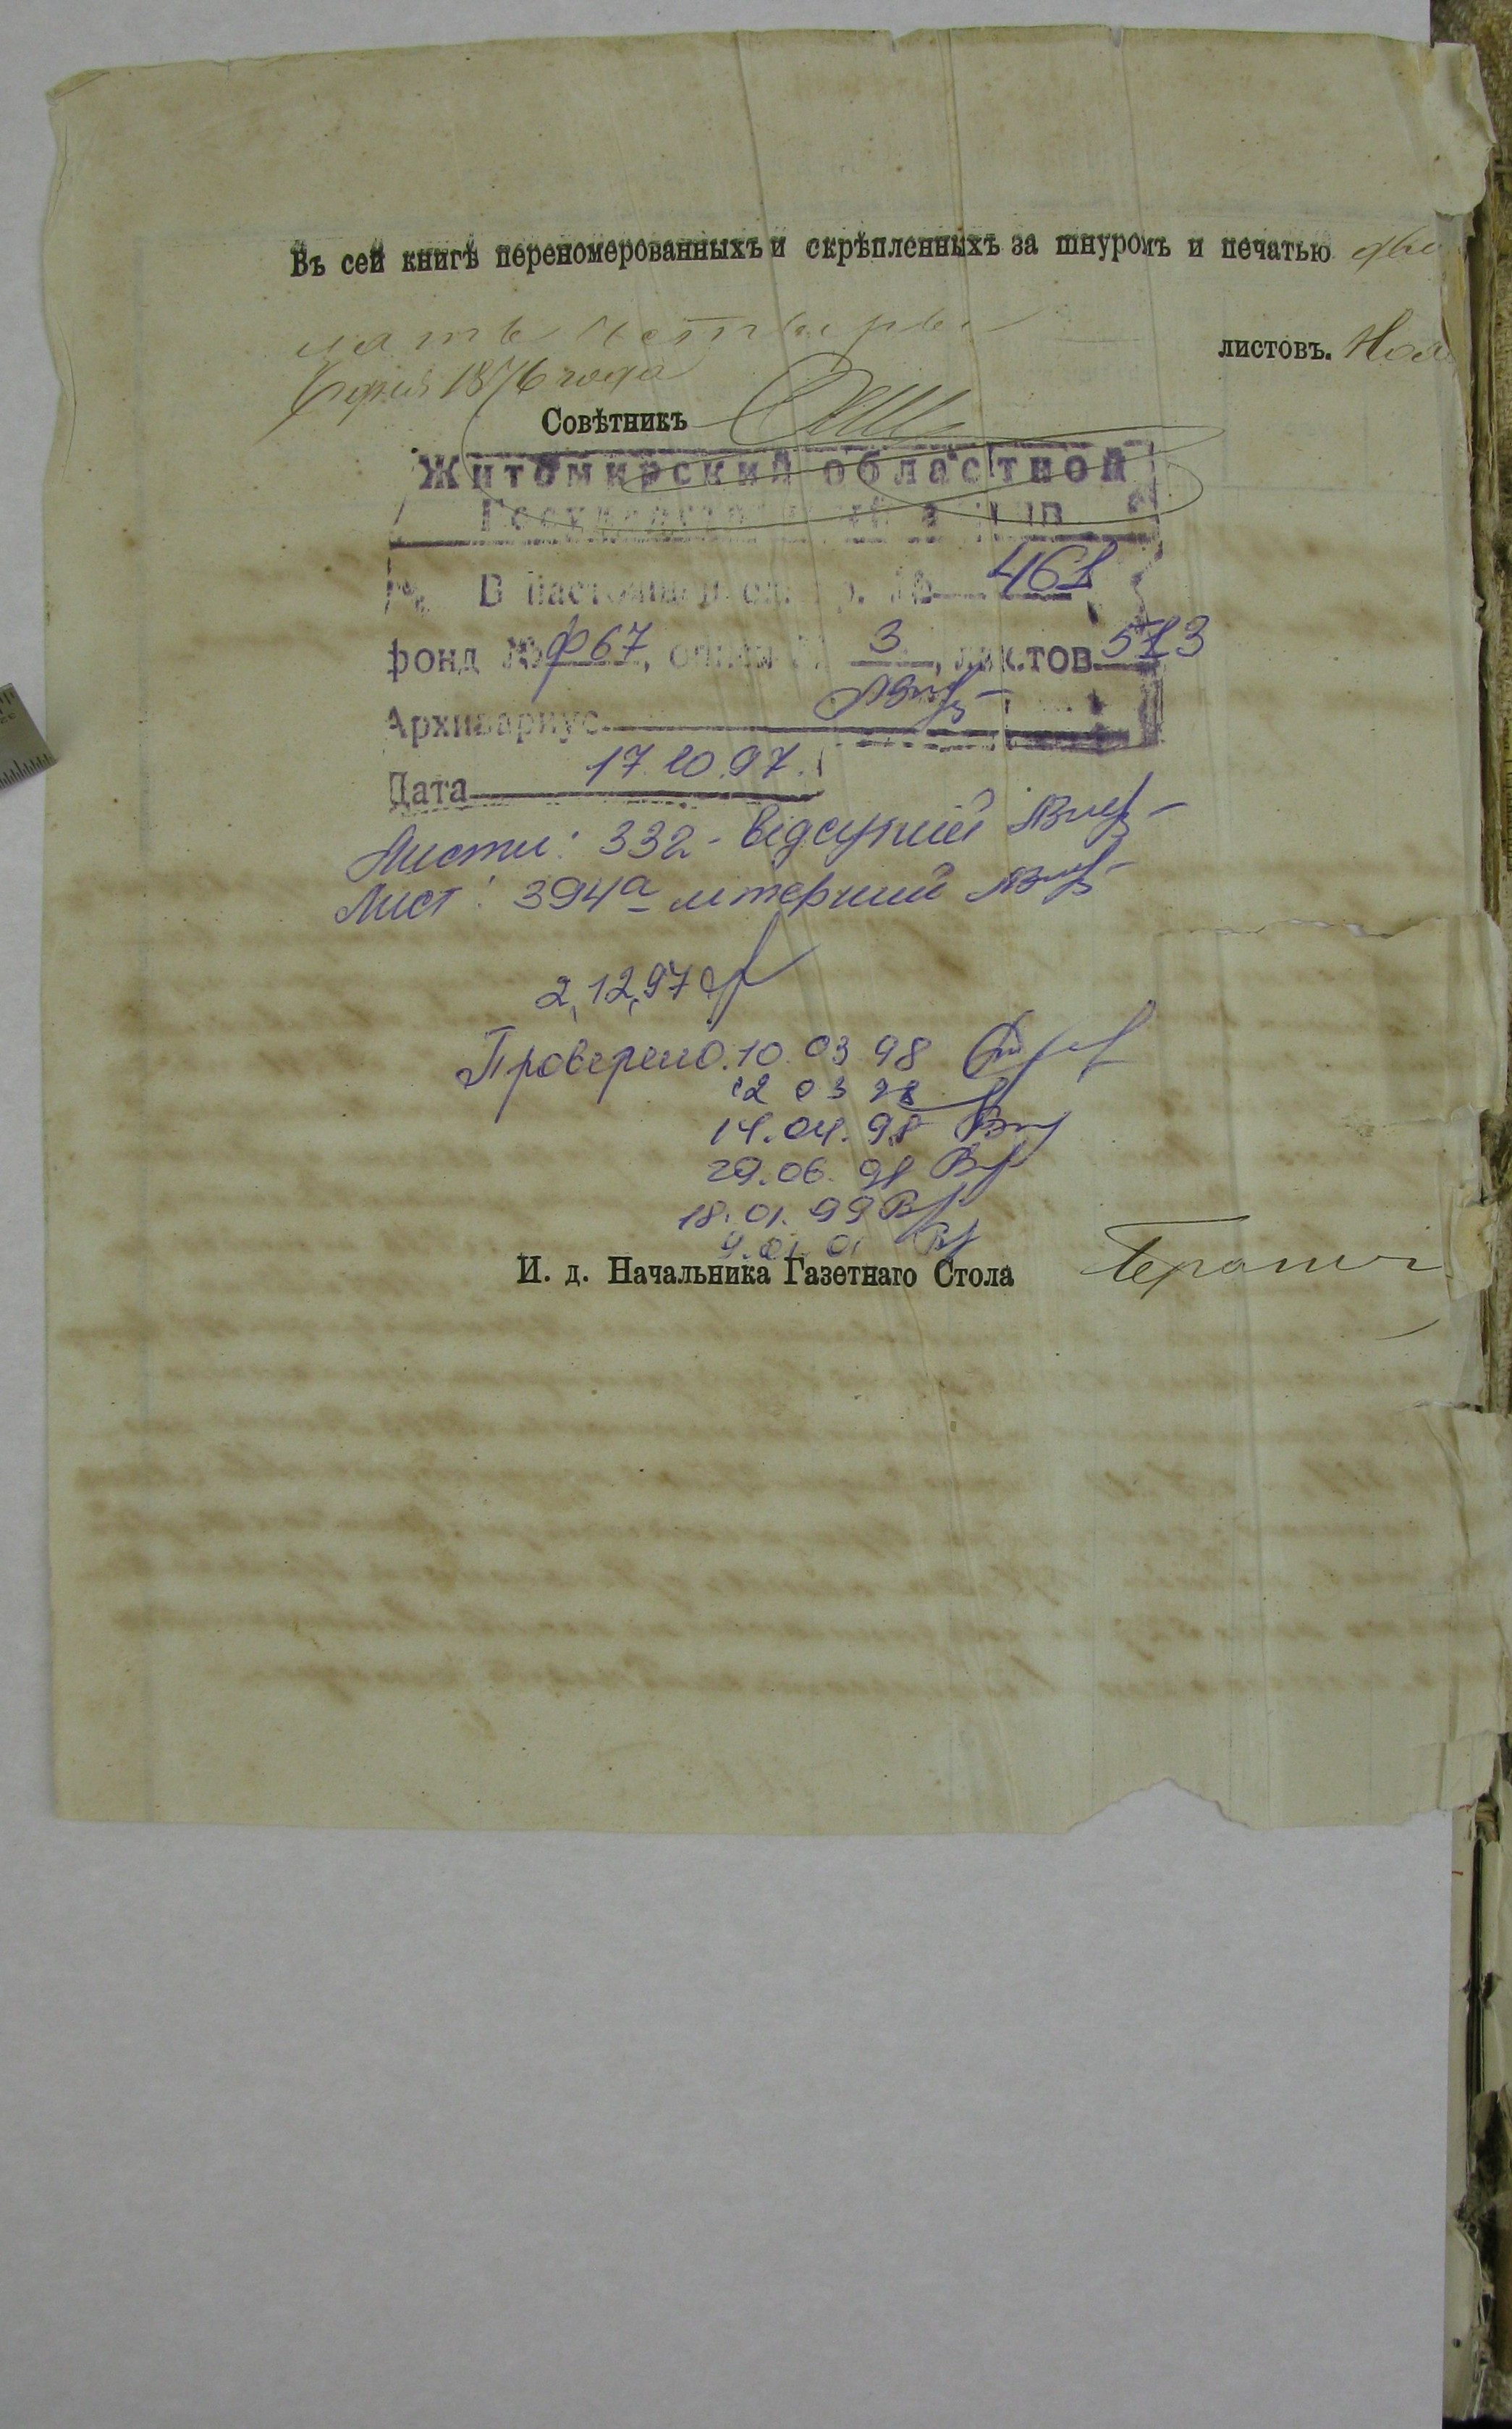 Въ сей книгѣ переномерованныхъ и скрѣпленныхъ за шнуромъ и печатью два
цать четыре листовъ. Ноя
6 дня 1876 года
Совѣтникъ
Житомирский областной
Государственный архив
В настоящем ед. хр. № 461
фонд № ф67, описи № 3, листов 513
Архивариус
Дата 17.10.97.
Листи: 332 - відсутній
Лист: 394а літерний
2,12,97
Проверено. 10.03.98
12 03 98
14.04.98
29.06.98
18.01.99
9.01.01
И. д. Начальника Газетнаго Стола